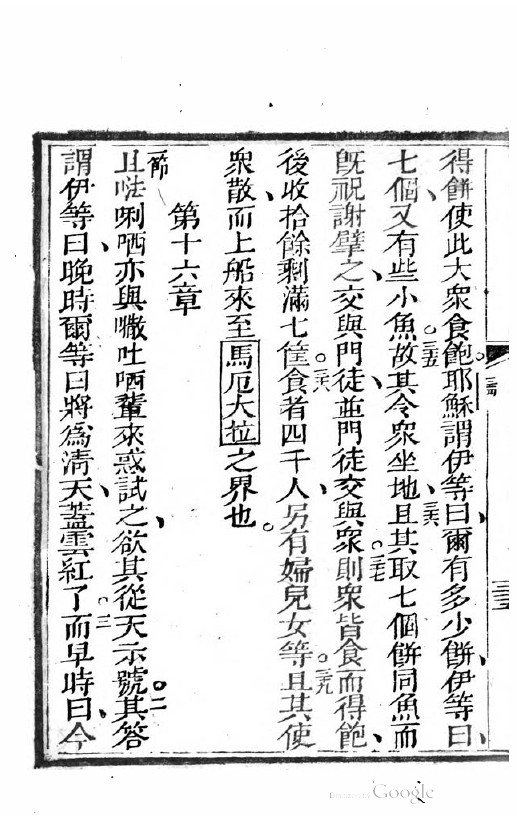 得餅使此大衆食飽。三四耶穌謂伊等曰、爾有多少餅、伊等曰、
七個、又有些小魚。三五故其令衆坐地、三六且其取七個餅同魚而
旣祝謝擘之、交與門徒、並門徒交與衆。三七則衆皆食而得飽、
後收拾餘剩滿七筐。三八食者四千人、另有婦兒女等。三九且其使
衆散、而上船來至馬厄大拉之界也。
第十六章
一節
且𠵽唎哂亦與㘔吐哂輩來惑試之、欲其從天示號。二其答
謂伊等曰、晚時爾等曰、將爲清天、蓋雲紅了。三而早時曰、今
Digitized by Google